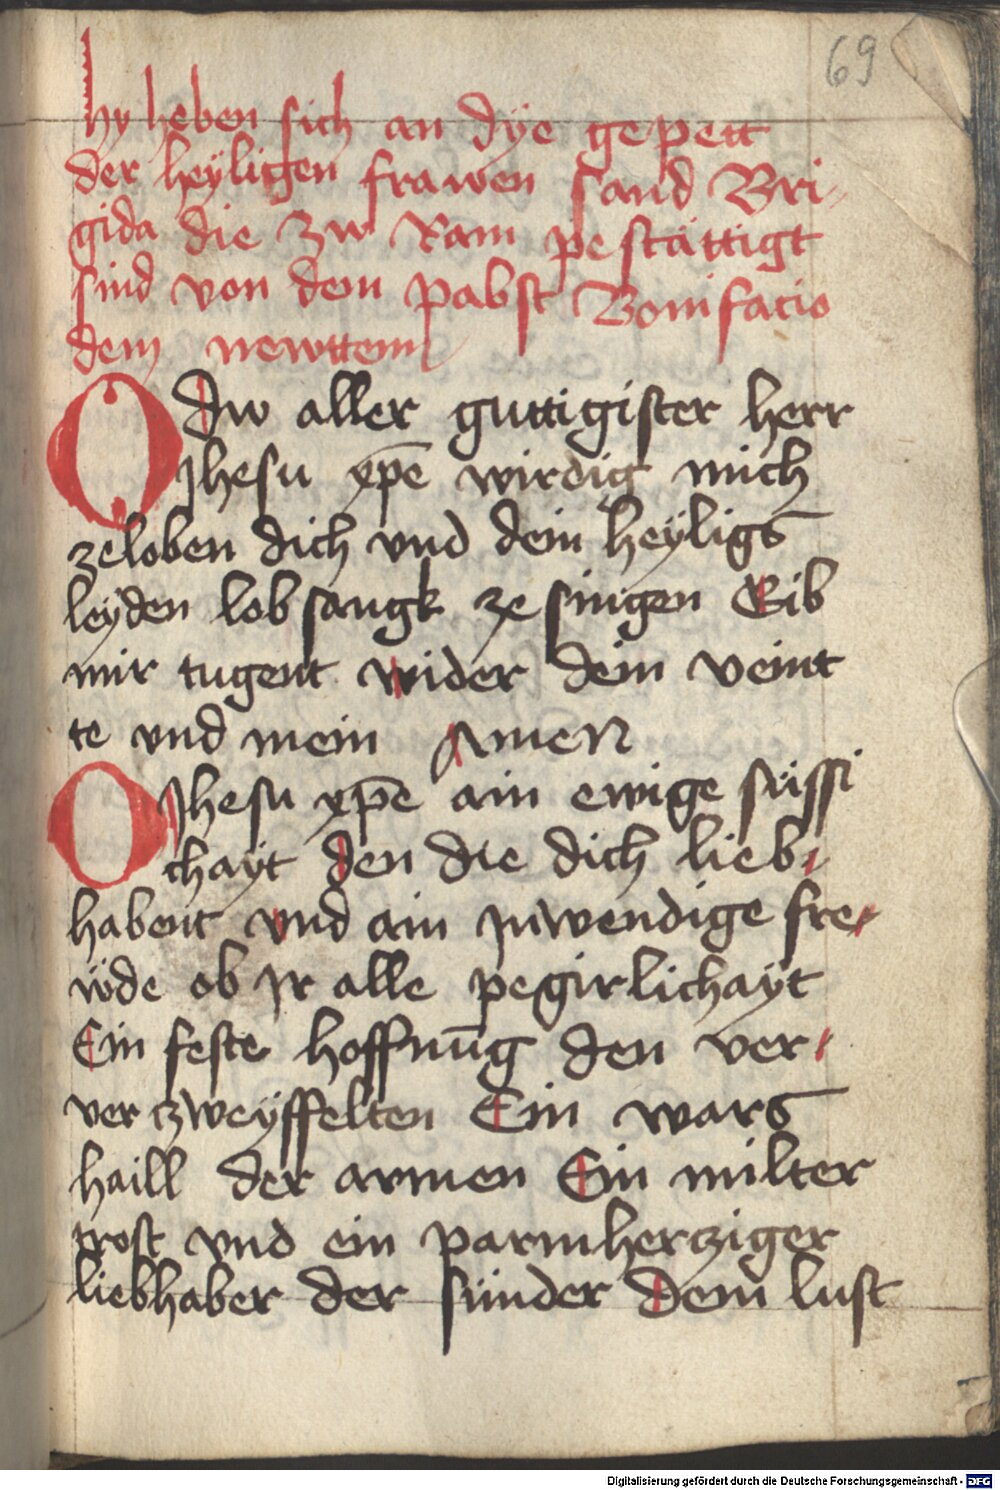 69
hy heben sich an dÿe gepett
der heÿligen frawen sand Bri-
gida die zw Ram pestättigt
sind von dem pabst Bonifacio
dem newttem
O dw aller guttigister herr
Jhesu xp̄e wirdig mich
zeloben dich vnd dein heÿligs
leÿden lobsangk ze singen Gib
mir tugent wider dein veint
te vnd mein Amen
O Jhesu xp̄e ain ewige süssi
chaÿt den die dich lieb-
habent vnd ain inwendige fre-
ẅde ob ir alle pegirlichaÿt
Ein feste hoffnūg den ver-
ver zweÿffelten Ein wars
haill der armen Ein milter
trost vnd ein parmherziger
liebhaber der sünder dem lust
Digitalisierung gefördert durch die Deutsche Forschungsgemeinschaft - DFG